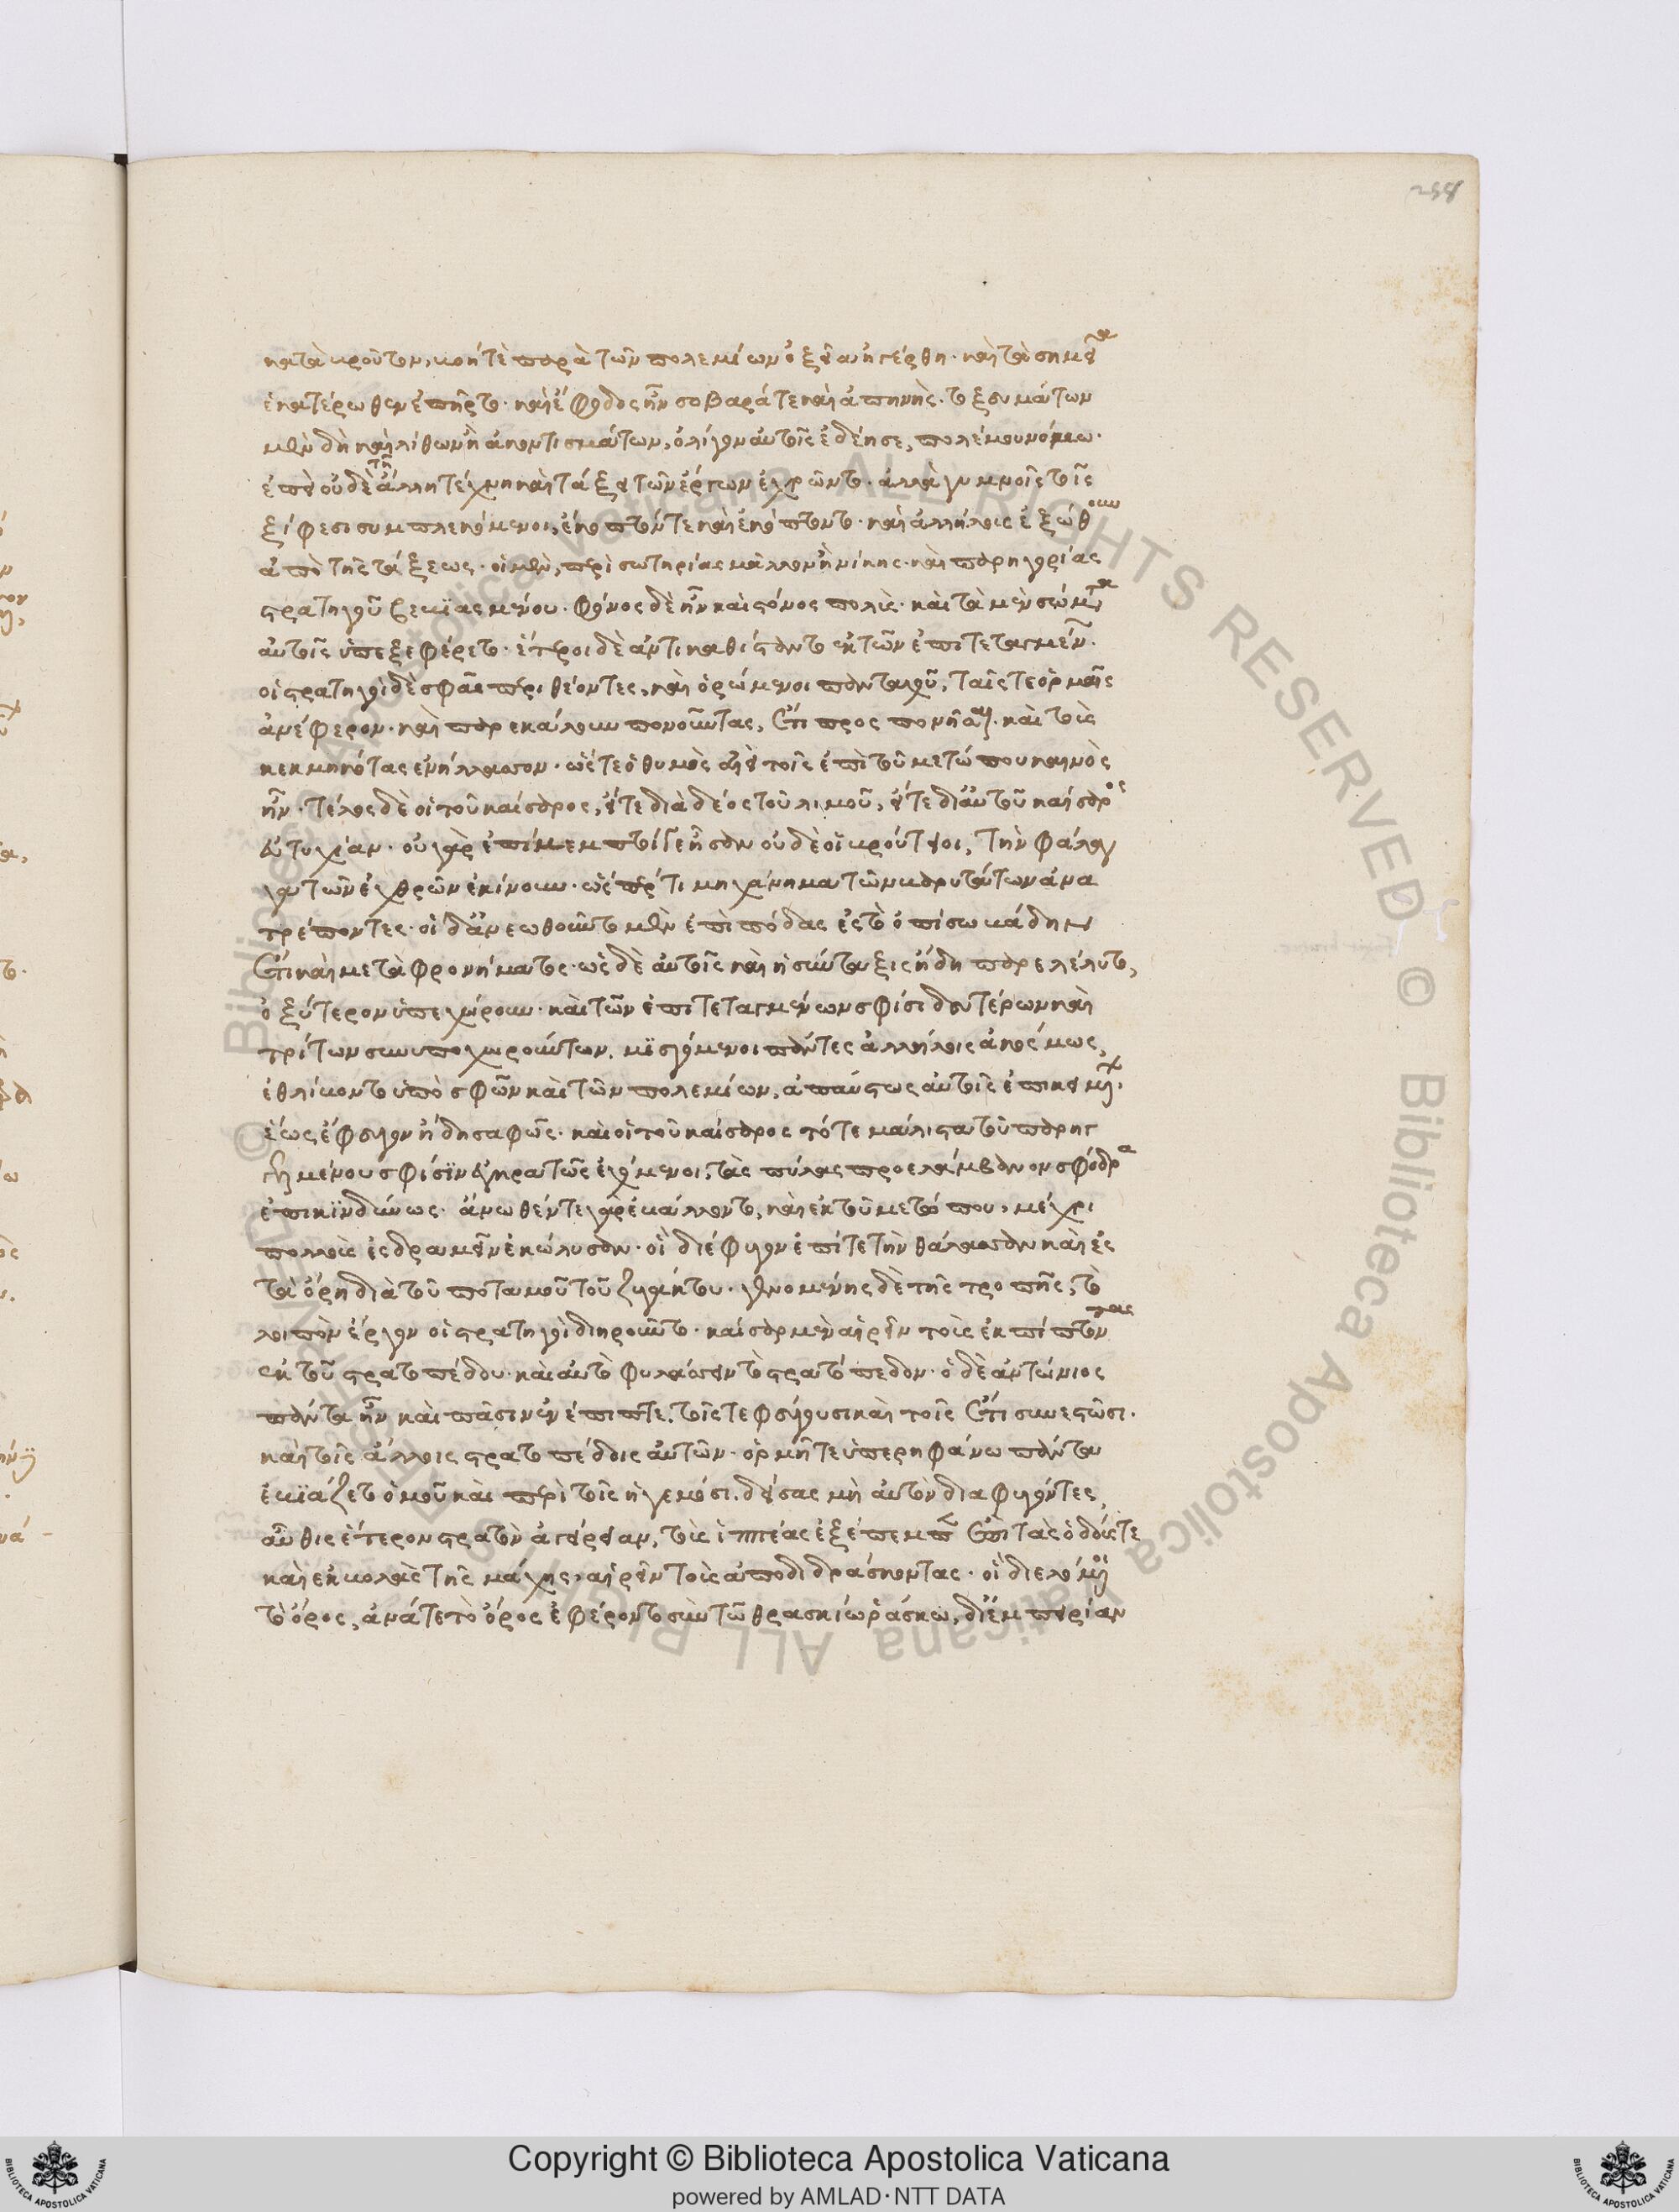 258
κατὰ κροῦτον, βοή τε παρὰ τῶν πολεμίων ὀξεῖα ἠγέρθη· καὶ τὰ σημεῖα
ἑκατέρωθεν ἐπῆρτο· καὶ ἔφοδος ἦν σοβαρά τε καὶ ἀπηνής· τοξευμάτων
μὲν δὴ καὶ λίθων ἢ ἀκοντισμάτων, ὀλίγον αὐτοῖς ἐδέησε, πολέμου νόμω·
ἐπεὶ οὐδὲ τῆ ἄλλη τέχνη καὶ τάξει τῶν ἔργων ἐχρῶντο· ἀλλὰ γυμνοῖς τοῖς
ξίφεσι συμπλεκόμενοι, ἔκοπτόν τε καὶ ἐκόπτοντο· καὶ ἀλλήλους ἐξώθουν
ἀπὸ τῆς τάξεως· οἱ μὲν, περὶ σωτηρίας μᾶλλον ἢ νίκης· καὶ παρηγορίας
στρατηγοῦ βεβιασμένου· φόνος δὲ ἦν καὶ στόνος πολύς· καὶ τὰ μὲν σώματα
αὐτοῖς ὑπεξεφέρετο· ἕτεροι δὲ ἀντικαθίσταντο ἐκ τῶν ἐπιτεταγμένων·
οἱ στρατηγοὶ δὲ σφᾶς περιθέοντες, καὶ ὁρώμενοι πανταχοῦ, ταῖς τε ὁρμαῖς
ἀνέφερον· καὶ παρεκάλουν πονοῦντας, ἔτι προσπονῆσαι· καὶ τοὺς
κεκμηκότας ἐνήλλασσον· ὥστε ὁ θυμὸς ἀεὶ τοῖς ἐπὶ τοῦ μετώπου καινὸς
ἦν· τέλος δὲ οἱ τοῦ καίσαρος, εἴτε διὰ δέος τοῦ λιμοῦ, εἴτε δι' αὐτοῦ καίσαρος
εὐτυχίαν· οὐ γὰρ ἐπίμεμπτοί γε ἦσαν οὐδὲ οἱ βρούτειοι, τὴν φάλαγ
γα τῶν ἐχθρῶν ἐκίνουν· ὥσπερ τι μηχάνημα τῶν βαρυτάτων ἀνα
τρέποντες· οἱ δ' ἀνεωθοῦντο μὲν ἐπὶ πόδας ἐς τὸ ὀπίσω βάδην
ἔτι καὶ μετὰ φρονήματος· ὡς δὲ αὐτοῖς καὶ ἡ σύνταξις ἤδη παρελέλυτο,
ὀξύτερον ὑπεχώρουν· καὶ τῶν ἐπιτεταγμένων σφίσι δευτέρων καὶ
τρίτων συνυποχωρούντων, μισγόμενοι πάντες ἀλλήλοις ἀκόσμως,
ἐθλίβοντο ὑπὸ σφῶν καὶ τῶν πολεμίων, ἀπαύστως αὐτοῖς ἐπικειμένων·
ἕως ἔφευγον ἤδη σαφῶς· καὶ οἱ τοῦ καίσαρος τότε μάλιστα τοῦ παρηγ
γελμένου σφίσιν ἐγκρατῶς ἐχόμενοι, τὰς πύλας προελάμβανον σφόδρα
ἐπικινδύνως· ἄνωθέν τε γὰρ ἐβάλλοντο, καὶ ἐκ τοῦ μετώπου, μέχρι
πολλοὺς ἐσδραμεῖν ἐκώλυσαν· οἳ διέφυγον ἐπί τε τὴν θάλασσαν καὶ ἐς
τὰ ὄρη διὰ τοῦ ποταμοῦ τοῦ ζυγάκτου· γενομένης δὲ τῆς τροπῆς, τὸ
λοιπὸν ἔργον οἱ στρατηγοὶ διηροῦντο· καίσαρ μὲν αἱρεῖν τοὺς ἐκπίπτοντας
ἐκ τοῦ στρατοπέδου· καὶ αὐτὸ φυλάσσειν τὸ στρατόπεδον· ὁ δὲ ἀντώνιος
πάντα ἦν καὶ πᾶσιν ἐνέπιπτε, τοῖς τε φεύγουσι καὶ τοῖς ἔτι συνεστῶσι·
καὶ τοῖς ἄλλοις στρατοπέδοις αὐτῶν· ὁρμῆ τε ὑπερηφάνω πάντα
ἐβιάζετο ὁμοῦ καὶ περὶ τοῖς ἡγεμόσι· δείσας μὴ αὐτὸν διαφυγόντες,
αὖθις ἕτερον στρατὸν ἀγείρειαν, τοὺς ἱππέας ἐξέπεμπεν ἐπὶ τὰς ὁδούς τε
καὶ ἐκβολὰς τῆς μάχης, αἱρεῖν τοὺς ἀποδιδράσκοντας· οἳ διελόμενοι
τὸ ὄρος, ἀνά τε τὸ ὄρος ἐφέροντο σὺν τῶ θρακίω ῥάσκω, δι' ἐμπειρίαν
© Biblioteca Apostolica Vaticana ALL RIGHTS RESERVED
Copyright © Biblioteca Apostolica Vaticana
powered by AMLAD・NTT DATA
BIBLIOTECA APOSTOLICA VATICANA
BIBLIOTECA APOSTOLICA VATICANA